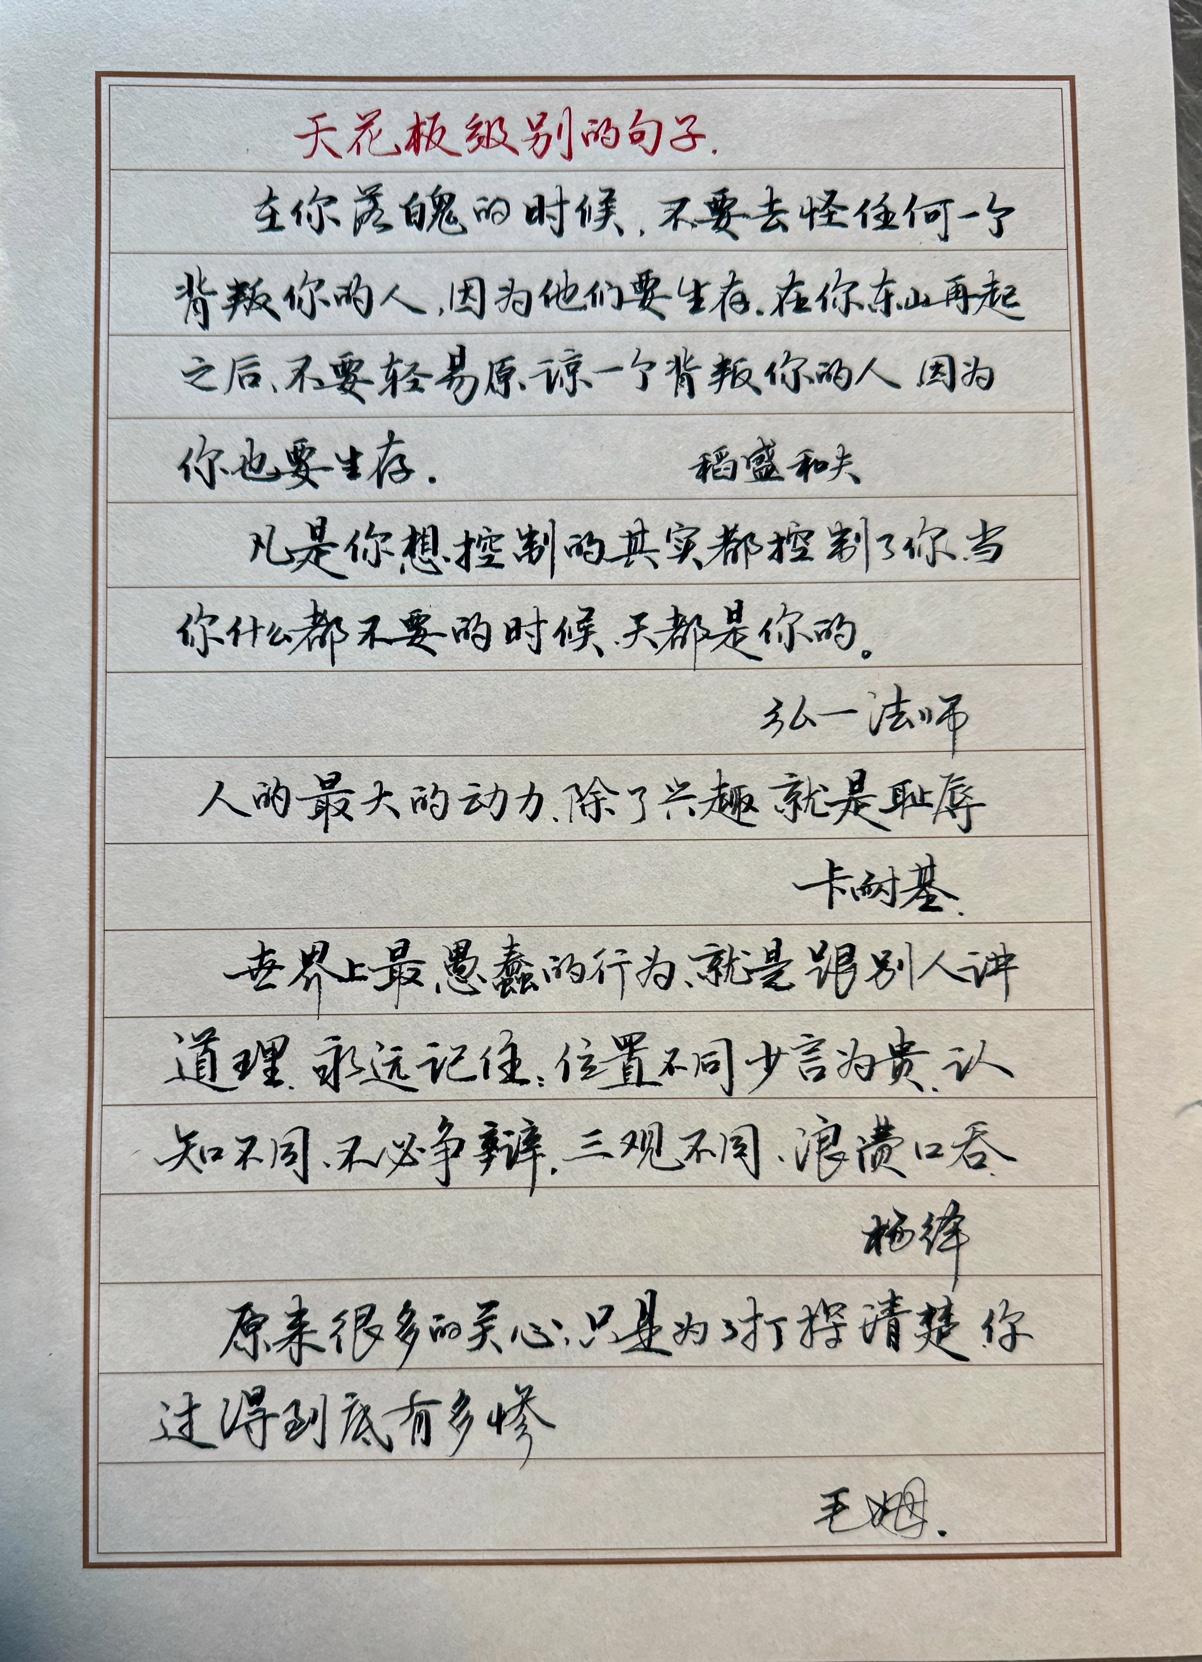 天花板级别的句子.
在你落魄的时候,不要去怪任何一个
背叛你的人,因为他们要生存.在你东山再起
之后、不要轻易原谅一个背叛你的人 因为
你也要生存. 稻盛和夫
凡是你想控制的其实都控制了你、当
你什么都不要的时候、天都是你的。
弘一法师
人的最大的动力、除了兴趣 就是耻辱
卡耐基.
世界上最愚蠢的行为、就是跟别人讲
道理、永远记住:位置不同少言为贵、认
知不同、不必争辩,三观不同、浪费口舌
杨绛
原来很多的关心,只是为了打探清楚 你
过得到底有多惨
毛姆.